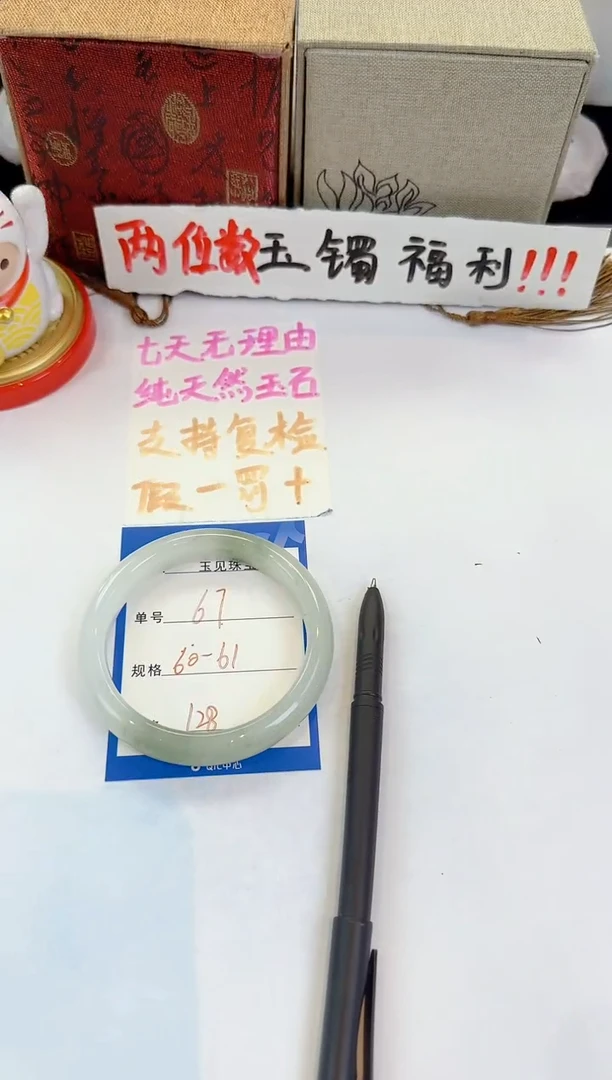 两位数玉镯福利!!!
七天无理由
纯天然玉石
支持复检
假一罚十
玉见珠
单号 67
规格 60-61
128
QC中心